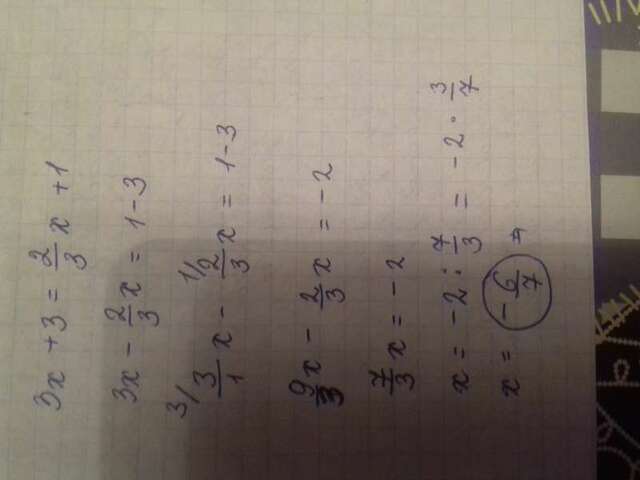 3x + 3 = 2/3 x + 1
3x - 2/3 x = 1 - 3
3/ 3/1 x - 1/ 2/3 x = 1 - 3
9/3 x - 2/3 x = -2
7/3 x = -2
x = -2 : 7/3 = -2 · 3/7
x = -6/7 =